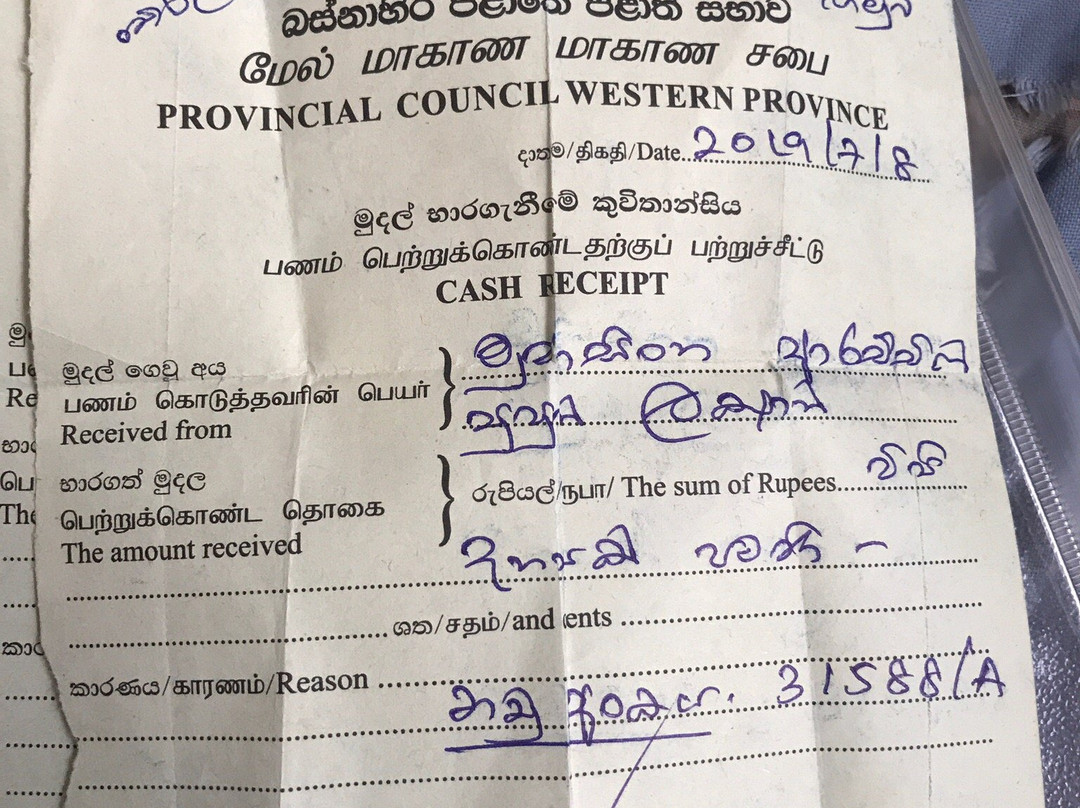 බස්නාහිර පළාතේ පළාත් සභාව
மேல் மாகாண மாகாண சபை
PROVINCIAL COUNCIL WESTERN PROVINCE
දාතම/திகதி/Date.. 2019/7/8
මුදල් භාරගැනීමේ කුවිතාන්සිය
பணம் பெற்றுக்கொண்டதற்குப் பற்றுச்சீட்டு
CASH RECEIPT
මුදල් ගෙවූ අය
பணம் கொடுத்தவரின் பெயர்
Received from
භාරගත් මුදල
பெற்றுக்கொண்ட தொகை
The amount received
රුපියල්/நபா/ The sum of Rupees.... විසි
දහසක් පමණි -
ශත/சதம்/and ents
කාරණය/காரணம்/Reason
නඩු අංකය. 31588/A